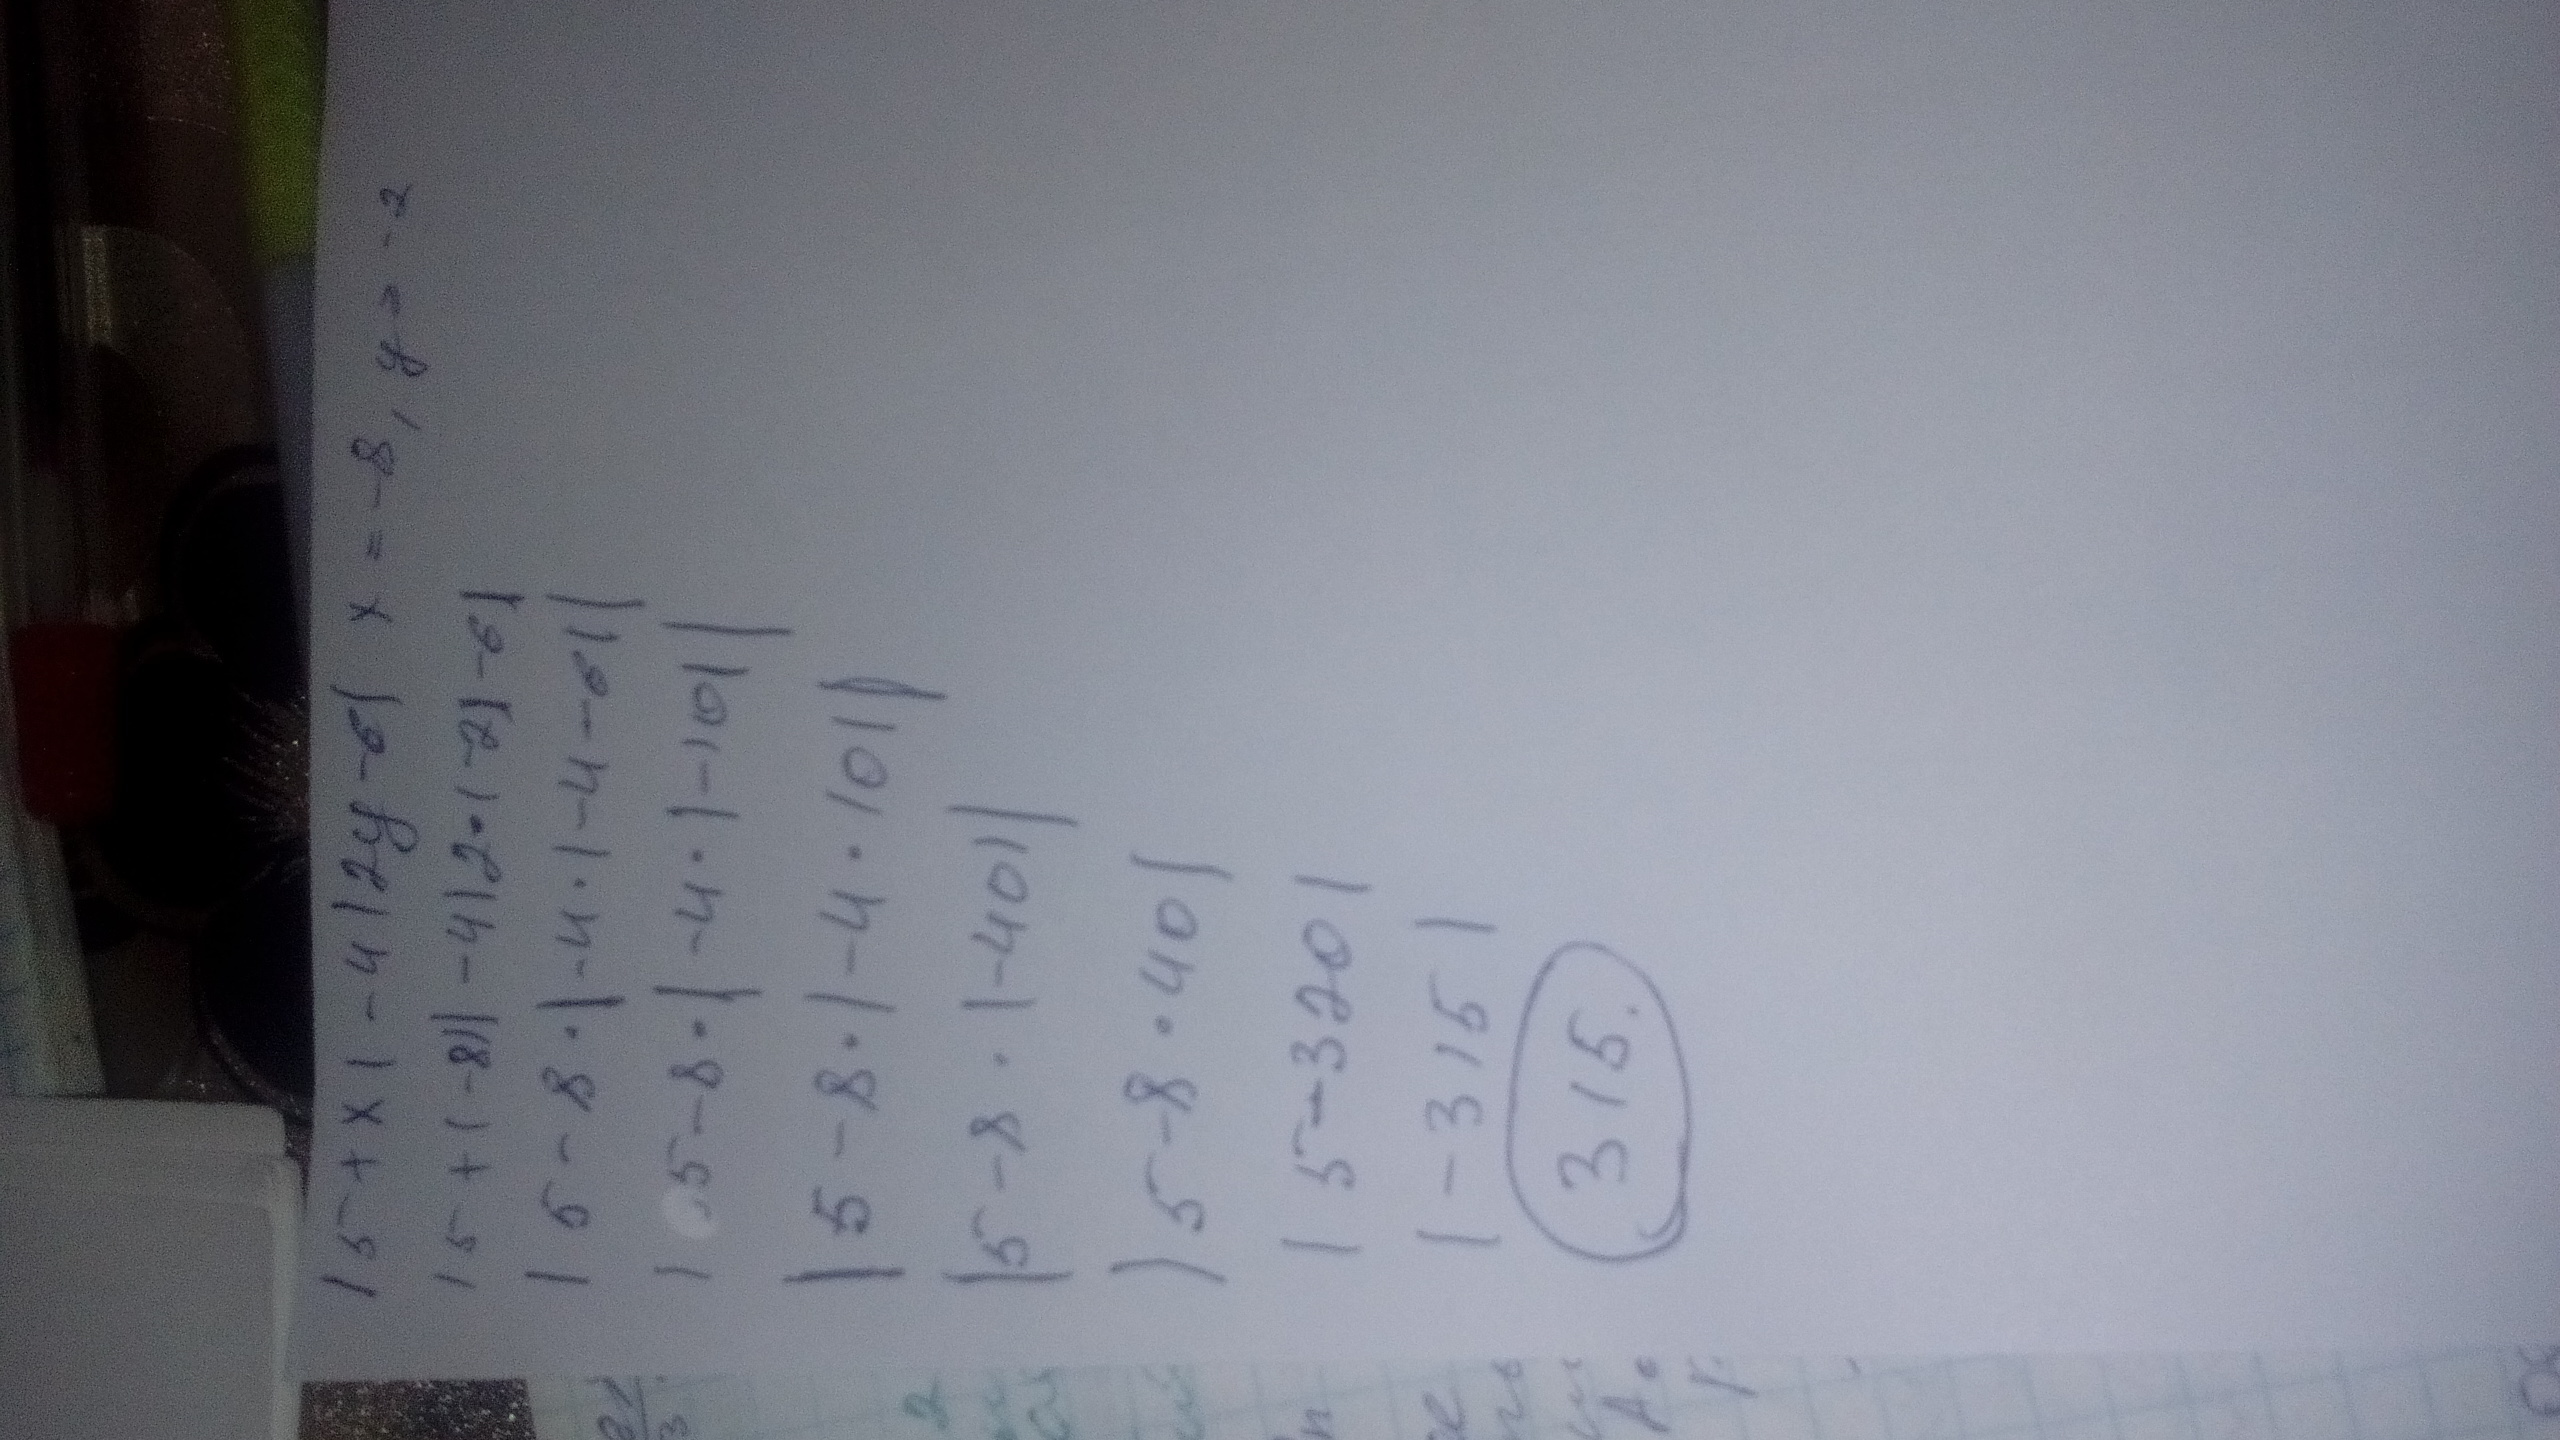 |5+x|-4|2y-6| x=-8, y=-2
|5+(-8)|-4|2•(-2)-6|
|5-8•|-4•|-4-6||
|5-8•|-4•|-10||
|5-8•|-4•10||
|5-8•|-40||
|5-8•40|
|5-320|
|-315|
315.